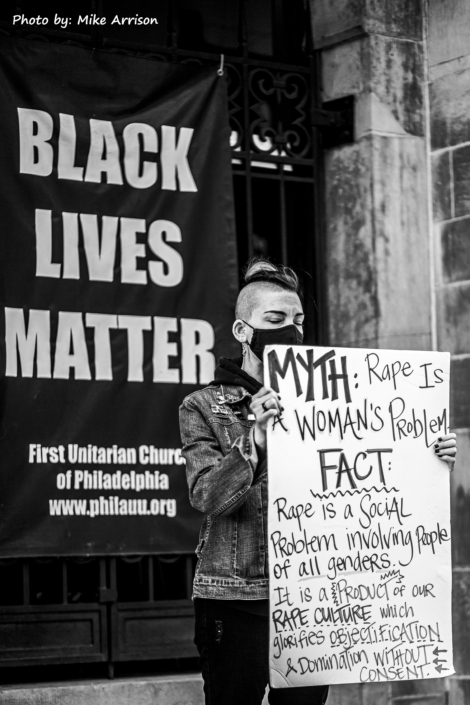 Photo by: Mike Arrison
BLACK
LIVES
MATTER
First Unitarian Churc
of Philadelphia
www.philauu.org
MYTH: Rape Is
A WOMAN'S Problem
FACT:
Rape is a SOCIAL
Problem involving People
of all genders.
It is a PRODUCT of our
RAPE CULTURE which
glorifies OBJECTIFICATION
& Domination WITHOUT
CONSENT.